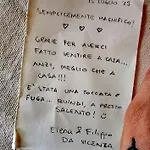 15 LUGLIO 25
SEMPLICEMENTE MAGNIFICO!
♡ ♡ ♡
GRAZIE PER AVERCI
FATTO SENTIRE A CASA...
ANZI, MEGLIO CHE A
CASA!!!
E' STATA UNA TOCCATA E
FUGA... QUINDI, A PRESTO
SALENTO! ☺
Elena & Filippo
DA VICENZA